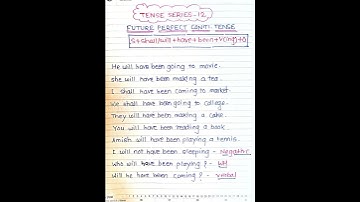 TENSE SERIES-12
FUTURE PERFECT CONTI. TENSE
S+shall/will+have+been+V(ing)+O
He will have been going to movie.
she will have been making a tea.
I shall have been coming to market
We shall have been going to college.
They will have been making a cake.
You will have been reading a book.
Amish will have been playing a tennis.
I will not have been sleeping - Negative
who will have been playing? - WH
Will he have been coming? - Verbal